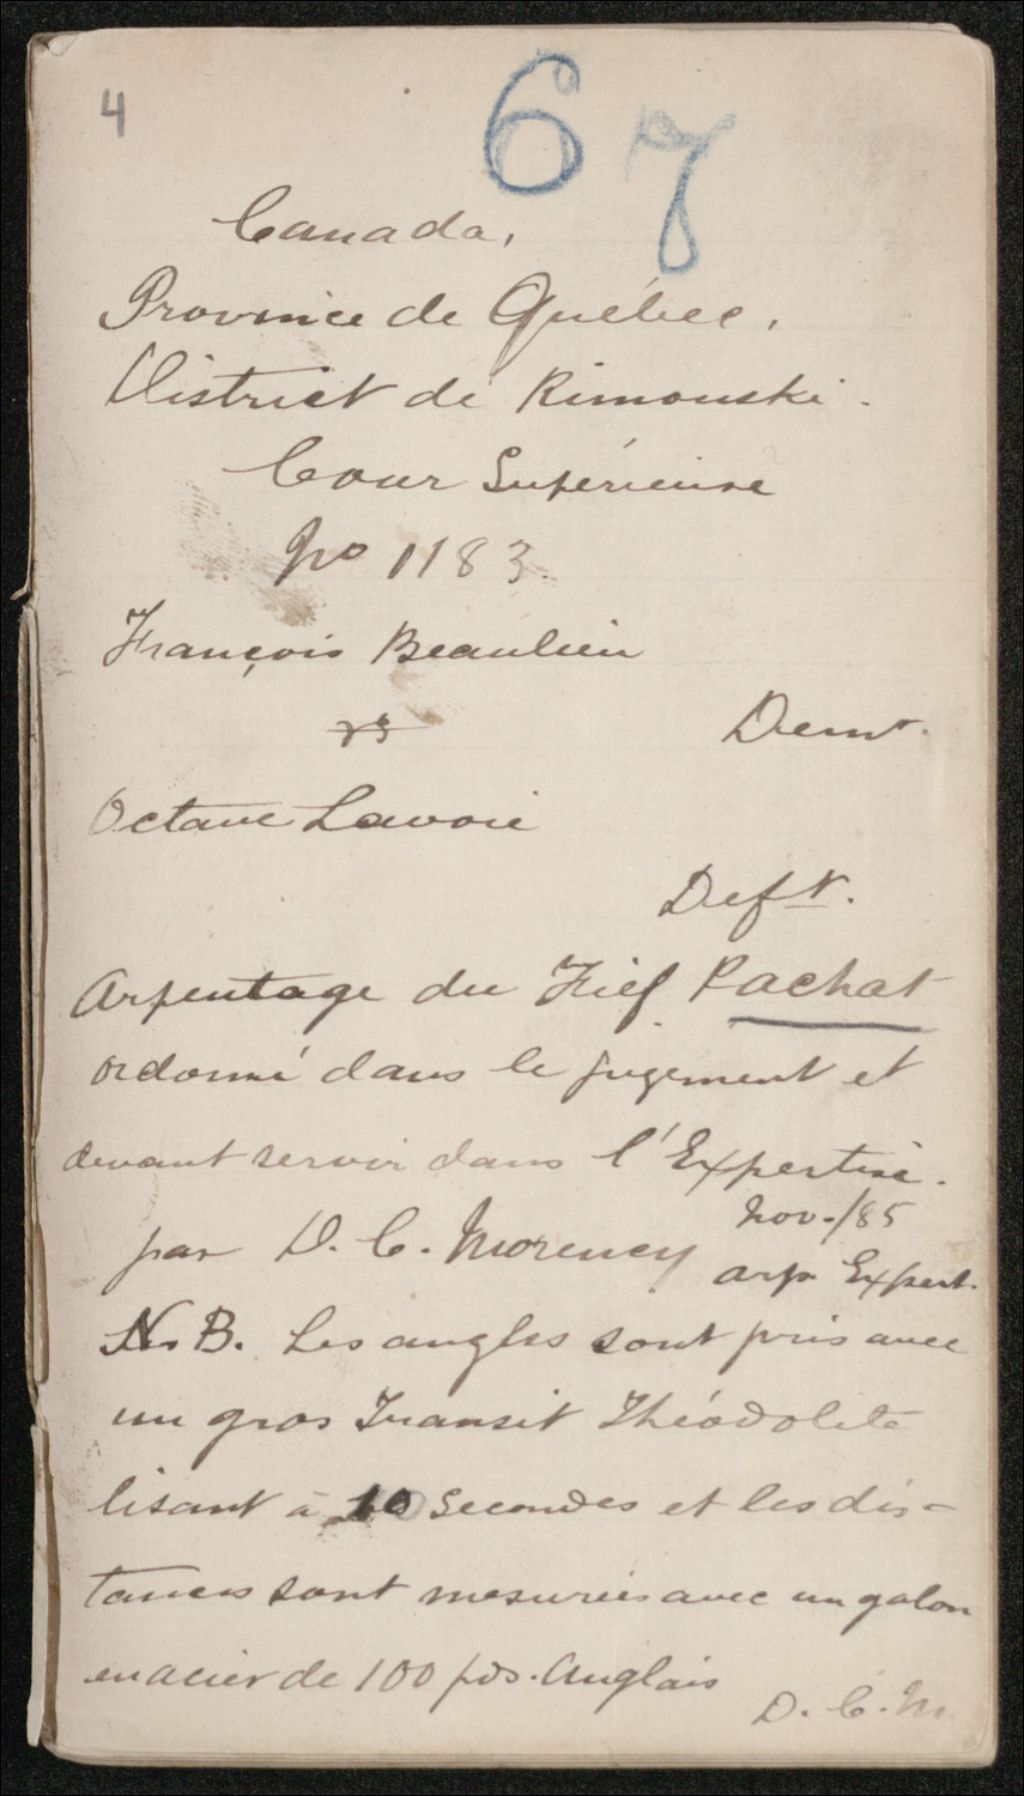 4
67
Canada,
Province de Québec,
District de Rimouski.
Cour Supérieure
No 1183.
François Beaulieu
vs
Demr.
Octave Lavoie
Deft.
Arpentage du Fief Pachat
ordonné dans le jugement et
devant servir dans l'Expertise.
Nov./85
par D. C. Morency
arp Expert.
N. B. Les angles sont pris avec
un gros Transit Théodolite
lisant à 10 secondes et les dis-
tances sont mesurées avec un galon
en acier de 100 pds. Anglais
D. C. M